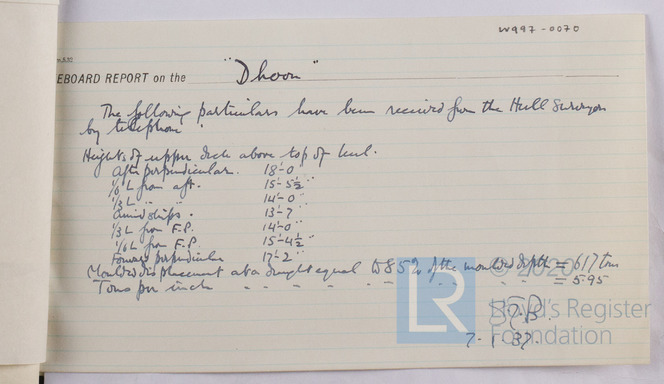 W997-0070
EBOARD REPORT on the "Dhoon"
The following particulars have been received from the Hull Surveyor
by telephone.
Heights of upper deck above top of keel.
After perpendicular. 18'-0
1/6 L from aft. 15'-5½"
1/3 L " " 14'-0"
Amidships. 13'-7
1/3 L from F.P. 14'-0"
1/6 L from F.P. 15'-4½"
Forward perpendicular 17'-2"
Moulded displacement at a draught equal to 85% of the moulded depth = 617 tons
Tons per inch " " " " " " = 5.95
7-1-37.
© 2020
LR
Lloyd's Register
Foundation